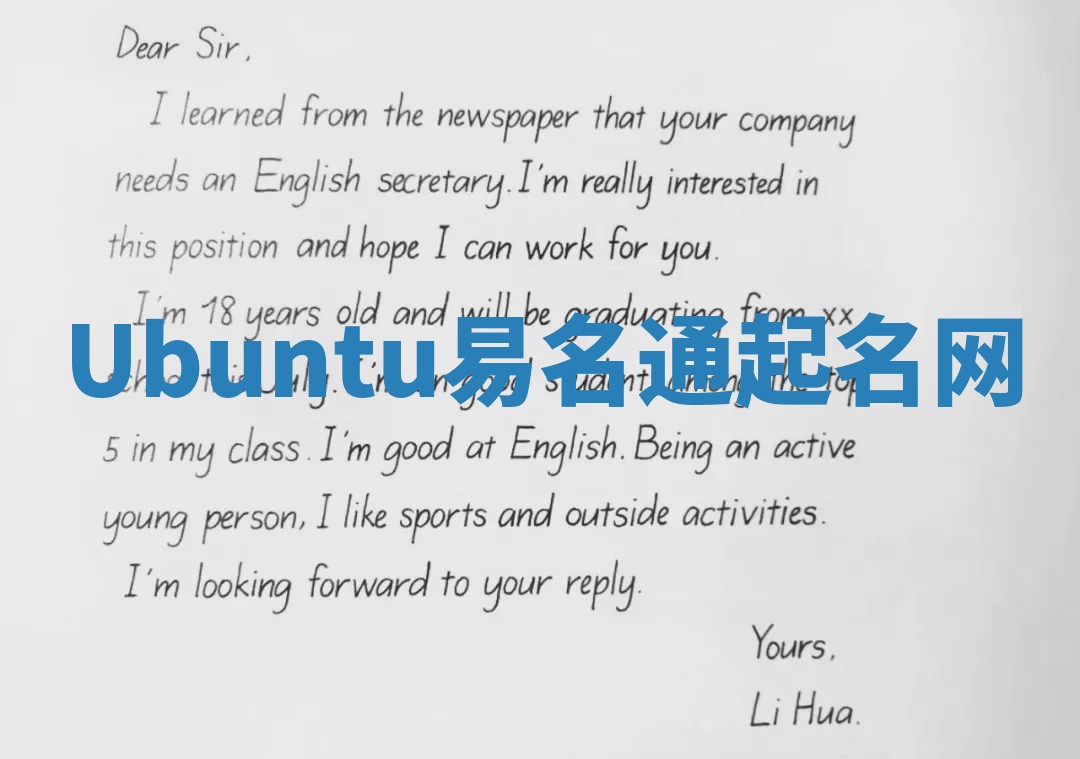 Dear Sir,
I learned from the newspaper that your company
needs an English secretary. I'm really interested in
this position and hope I can work for you.
I'm 18 years old and will be graduating from xx
Ubuntu易名通起名网
school this July. I'm an good student among the top
5 in my class. I'm good at English. Being an active
young person, I like sports and outside activities.
I'm looking forward to your reply.
Yours,
Li Hua.